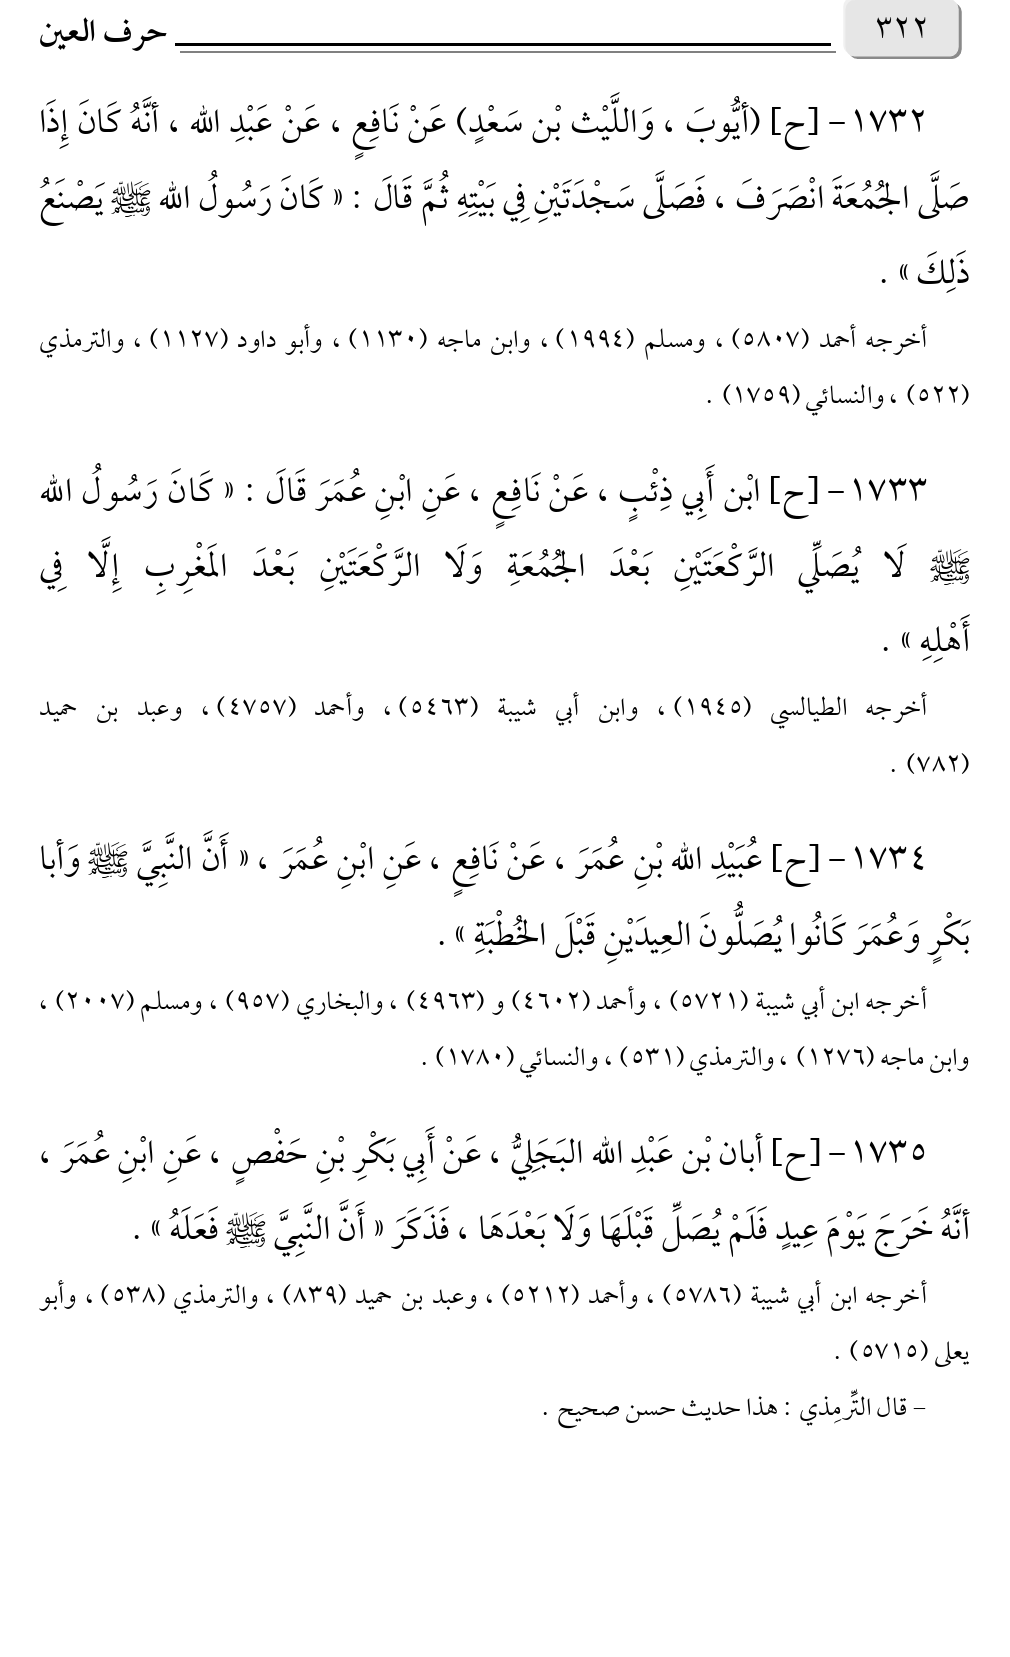 ٣٢٢ حرف العين
١٧٣٢ – [ح] (أيُّوبَ ، وَاللَّيْث بْن سَعْدٍ) عَنْ نَافِعٍ ، عَنْ عَبْدِ الله ، أنَّهُ كَانَ إِذَا
صَلَّى الجُمُعَةَ انْصَرَفَ ، فَصَلَّى سَجْدَتَيْنِ فِي بَيْتِهِ ثُمَّ قَالَ : « كَانَ رَسُولُ الله ﷺ يَصْنَعُ
ذَلِكَ » .
أخرجه أحمد (٥٨٠٧) ، ومسلم (١٩٩٤) ، وابن ماجه (١١٣٠) ، وأبو داود (١١٢٧) ، والترمذي
(٥٢٢) ، والنسائي (١٧٥٩) .
١٧٣٣ – [ح] ابْن أَبِي ذِئْبٍ ، عَنْ نَافِعٍ ، عَنِ ابْنِ عُمَرَ قَالَ : « كَانَ رَسُولُ الله
ﷺ لَا يُصَلِّي الرَّكْعَتَيْنِ بَعْدَ الجُمُعَةِ وَلَا الرَّكْعَتَيْنِ بَعْدَ المَغْرِبِ إِلَّا فِي
أَهْلِهِ » .
أخرجه الطيالسي (١٩٤٥) ، وابن أبي شيبة (٥٤٦٣) ، وأحمد (٤٧٥٧) ، وعبد بن حميد
(٧٨٢) .
١٧٣٤ – [ح] عُبَيْدِ الله بْنِ عُمَرَ ، عَنْ نَافِعٍ ، عَنِ ابْنِ عُمَرَ ، « أَنَّ النَّبِيَّ ﷺ وَأبا
بَكْرٍ وَعُمَرَ كَانُوا يُصَلُّونَ العِيدَيْنِ قَبْلَ الخُطْبَةِ » .
أخرجه ابن أبي شيبة (٥٧٢١) ، وأحمد (٤٦٠٢) و (٤٩٦٣) ، والبخاري (٩٥٧) ، ومسلم (٢٠٠٧) ،
وابن ماجه (١٢٧٦) ، والترمذي (٥٣١) ، والنسائي (١٧٨٠) .
١٧٣٥ – [ح] أبان بْن عَبْدِ الله البَجَلِيُّ ، عَنْ أَبِي بَكْرِ بْنِ حَفْصٍ ، عَنِ ابْنِ عُمَرَ ،
أنَّهُ خَرَجَ يَوْمَ عِيدٍ فَلَمْ يُصَلِّ قَبْلَهَا وَلَا بَعْدَهَا ، فَذَكَرَ « أَنَّ النَّبِيَّ ﷺ فَعَلَهُ » .
أخرجه ابن أبي شيبة (٥٧٨٦) ، وأحمد (٥٢١٢) ، وعبد بن حميد (٨٣٩) ، والترمذي (٥٣٨) ، وأبو
يعلى (٥٧١٥) .
– قال التِّرمِذي : هذا حديث حسن صحيح .